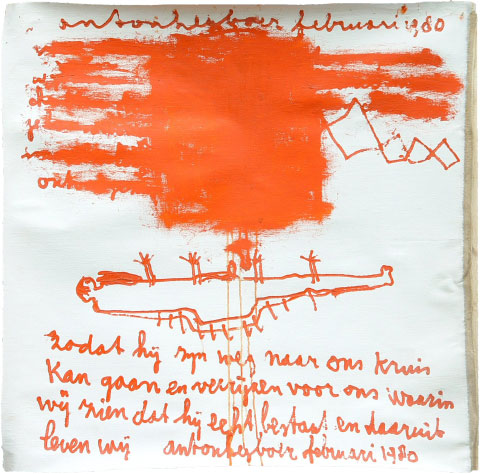 antonheyboer februari 1980
zodat hij zyn weg naar ons kruis
kan gaan en verrijzen voor ons waarin
wij zien dat hij echt bestaat en daaruit
leven wij antonheyboer februari 1980